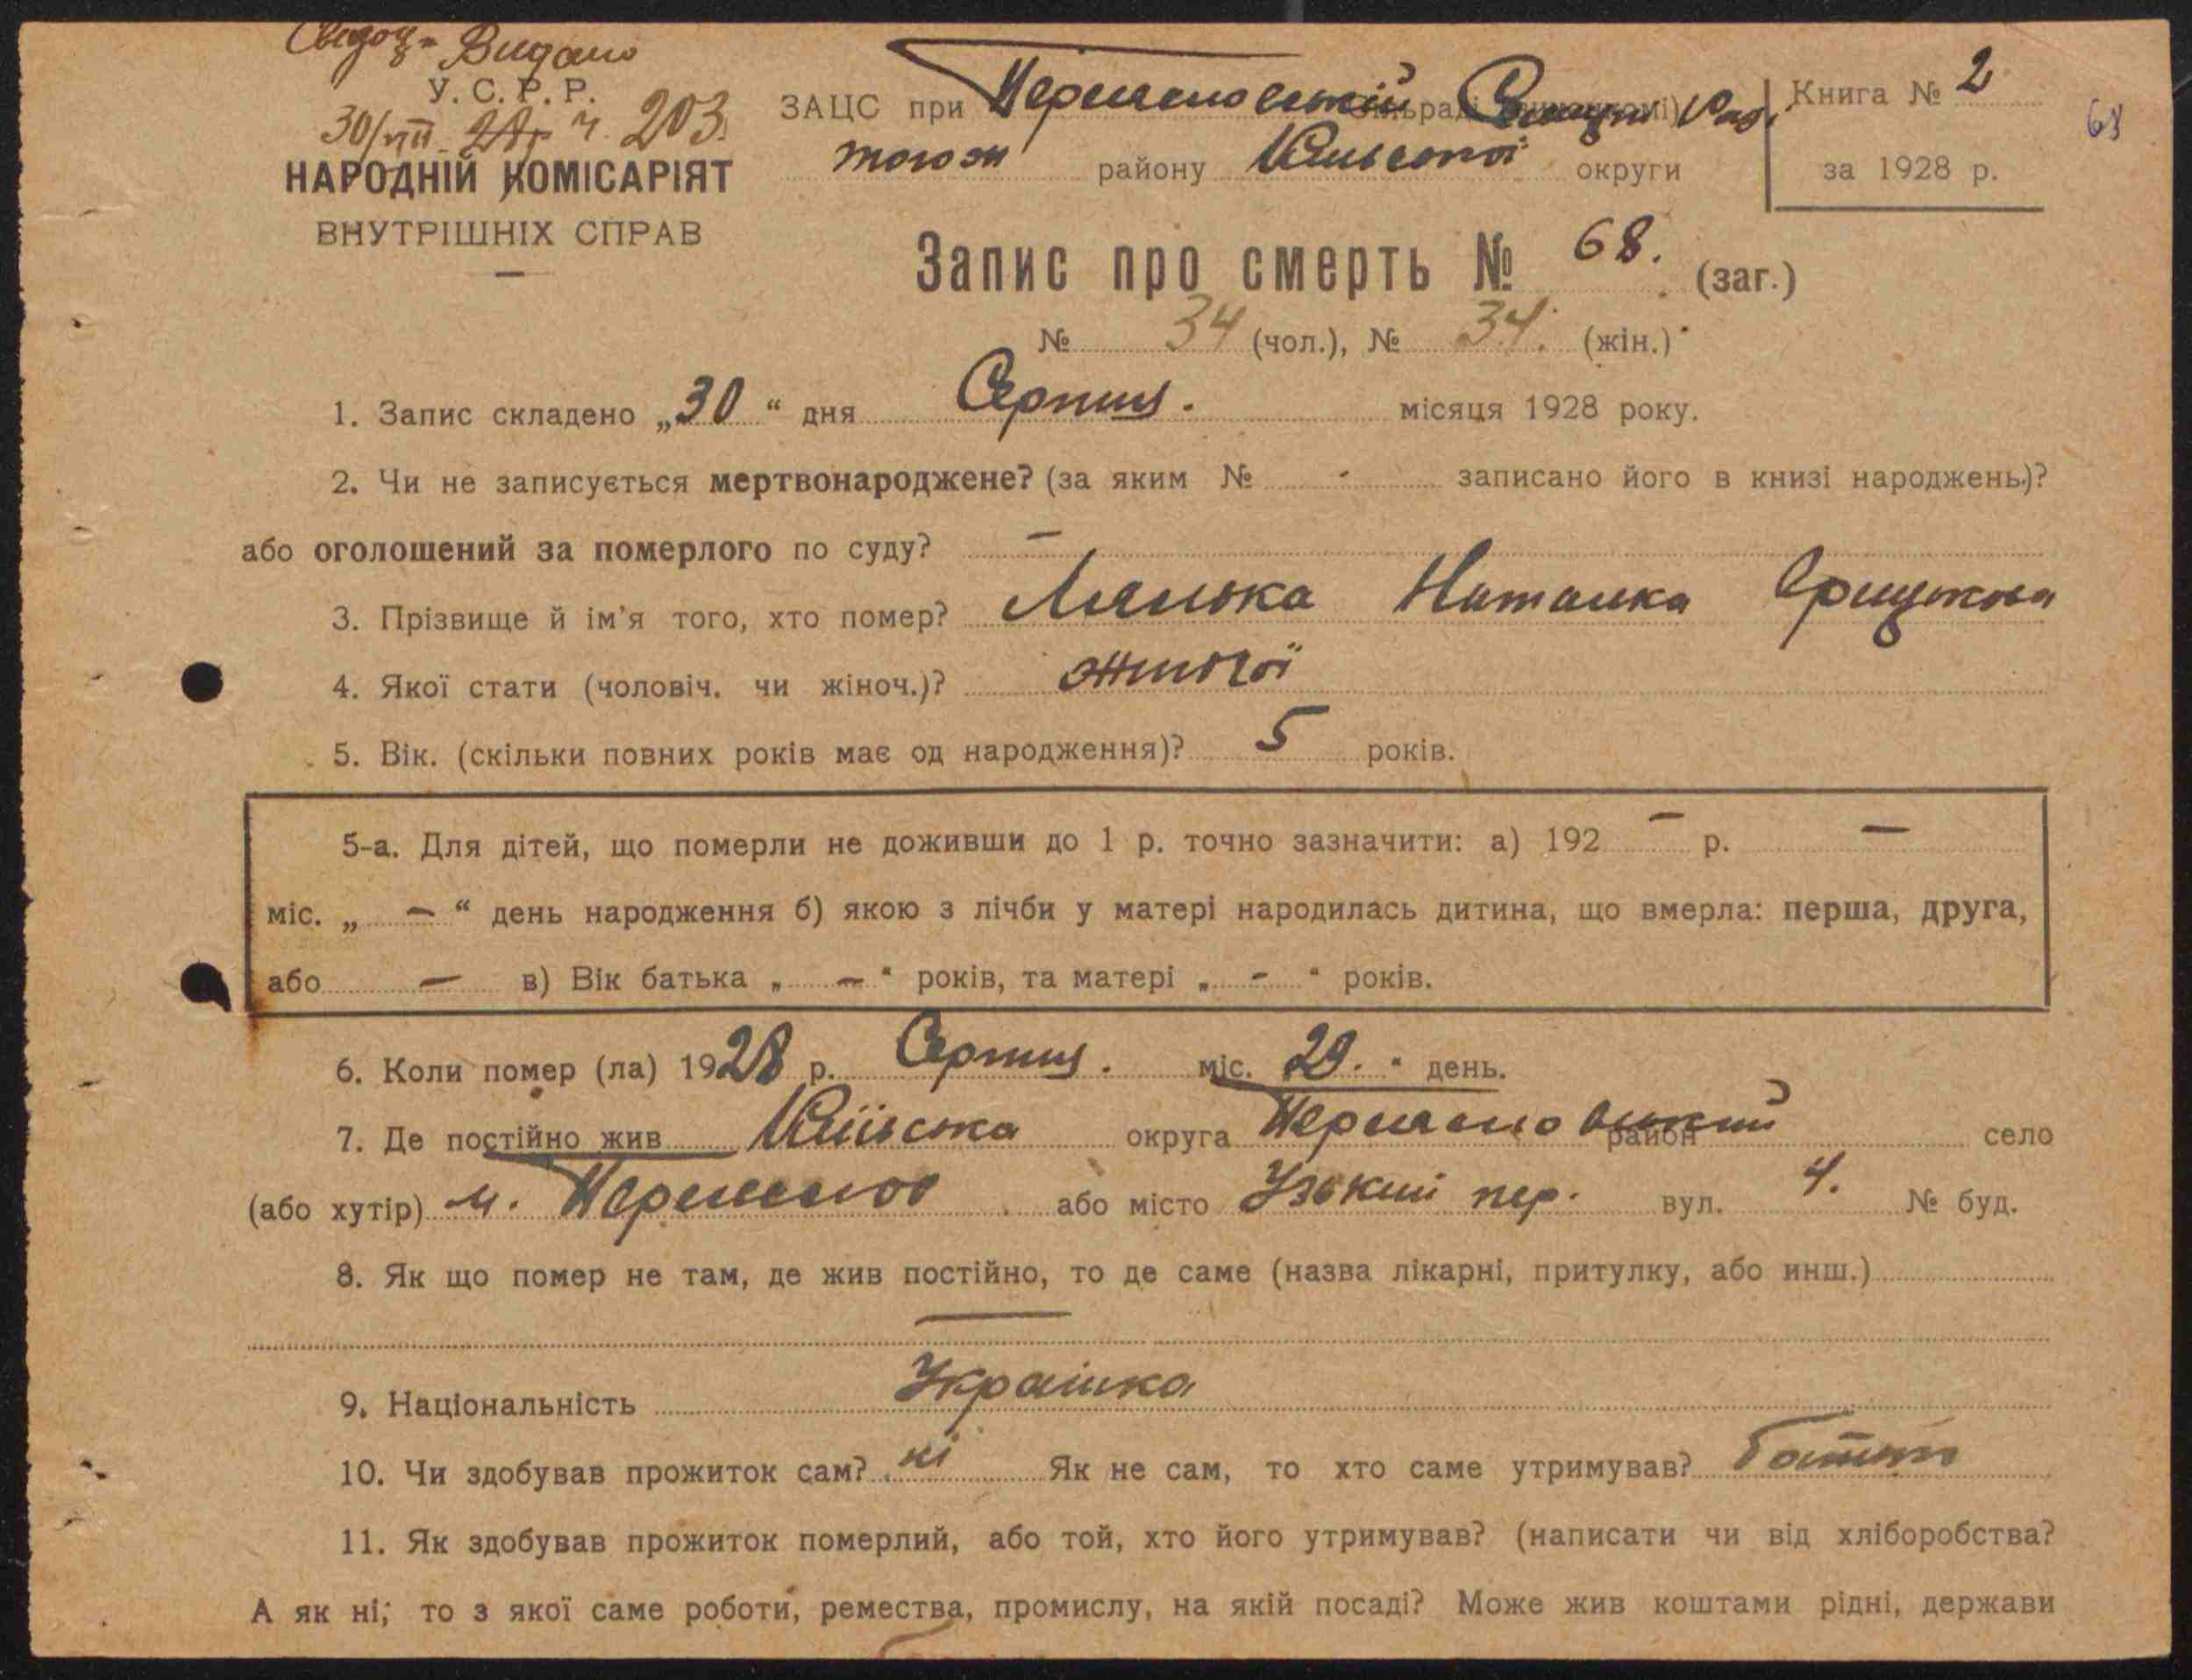 Видано
У.С.Р.Р.
30/VIII 28р ч. 203.
НАРОДНІЙ КОМІСАРІЯТ
ВНУТРІШНІХ СПРАВ
ЗАЦС при
того ж району Київської округи
Книга № 2
за 1928 р.
68
Запис про смерть № 68. (заг.)
№ 34 (чол.), № 34. (жін.)
1. Запис складено „30“ дня Серпня. місяця 1928 року.
2. Чи не записується мертвонароджене? (за яким № - записано його в книзі народжень.)?
або оголошений за померлого по суду? —
3. Прізвище й ім'я того, хто помер? Наталка
4. Якої стати (чоловіч. чи жіноч.)? жіночої
5. Вік. (скільки повних років має од народження)? 5 років.
5-а. Для дітей, що померли не доживши до 1 р. точно зазначити: а) 192 — р. —
міс. „ — “ день народження б) якою з лічби у матері народилась дитина, що вмерла: перша, друга,
або — в) Вік батька „ — “ років, та матері „ - “ років.
6. Коли помер (ла) 1928 р. Серпня. міс. 29. “ день.
7. Де постійно жив Київська округа район село
(або хутір) м. або місто Узький пер. вул. 4. № буд.
8. Як що помер не там, де жив постійно, то де саме (назва лікарні, притулку, або инш.)
—
9. Національність Українка
10. Чи здобував прожиток сам? ні Як не сам, то хто саме утримував? Батько
11. Як здобував прожиток померлий, або той, хто його утримував? (написати чи від хліборобства?
А як ні; то з якої саме роботи, ремества, промислу, на якій посаді? Може жив коштами рідні, держави